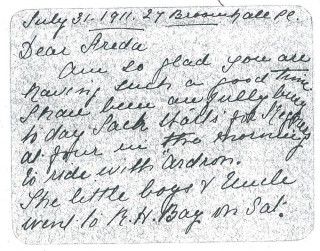 July 31 - 1911. 27 Broomhall Pl.
Dear Areda
Am so glad you are
having such a good time
I have been awfully busy
to day Jack starts for
at four in the morning
to ride with Ardron.
The little boys & Uncle
went to R. H. Bay on Sat.